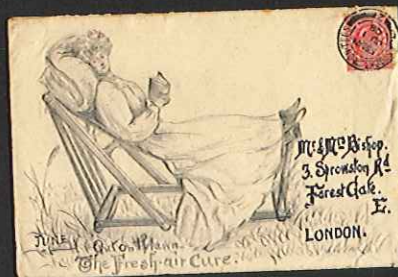 Mr & Mrs Bishop.
3, Sprowston Rd
Forest Gate.
E.
LONDON.
JUNE
Out on the lawn.
The Fresh-air Cure.